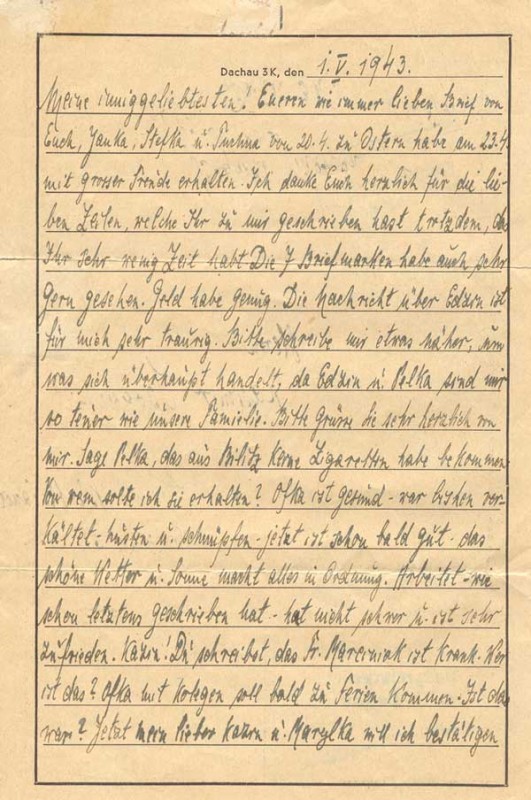 Dachau 3K, den 1.V. 1943.
Meine inniggeliebtesten! Eueren wie immer lieben Brief von
Euch, Janka, Stefka u. Puchna von 20.4. zu Ostern habe am 23.4.
mit grosser Freude erhalten. Ich danke Euch herzlich für die lie-
ben Zeilen, welche Ihr zu mir geschrieben hast trotzdem, das
Ihr sehr wenig Zeit habt. Die 7 Briefmarken habe auch sehr
gern gesehen. Geld habe genug. Die Nachricht über Edzin ist
für mich sehr traurig. Bitte schreibe mir etwas näher, um
was sich überhaupt handelt, da Edzin u. Pelka sind mir
so teuer wie unsere Familie. Bitte Grüsse die sehr herzlich von
mir. Sage Pelka, das aus Bilitz keine Zigaretten habe bekommen.
Von wem sollte ich sie erhalten? Ofka ist gesund - war bischen ver-
kältet - husten u. schnupfen - jetzt ist schon bald gut - das
schöne Wetter u. Sonne macht alles in Ordnung. Arbeitet - wie
schon letztens geschrieben hat - hat nicht schwer u. ist sehr
zufrieden. Kazin! Du schreibst, das Fr. Marciniak ist krank. Wer
ist das? Ofka mit Kolegen soll bald zu Ferien kommen. Ist das
war? Jetzt mein lieber Kazin u. Marylka will ich bestätigen